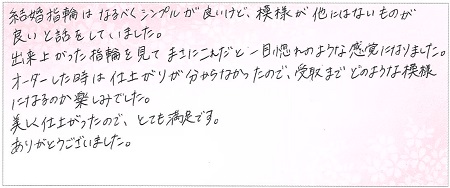 結婚指輪は なるべくシンプルが良いけど、模様が他にはないものが
良いと話をしていました。
出来上がった指輪を見て まさにこれだと一目惚れのような感覚になりました。
オーダーした時は 仕上がりが分からなかったので、受取まで どのような模様
になるのか楽しみでした。
美しく仕上がったので、とても満足です。
ありがとうございました。